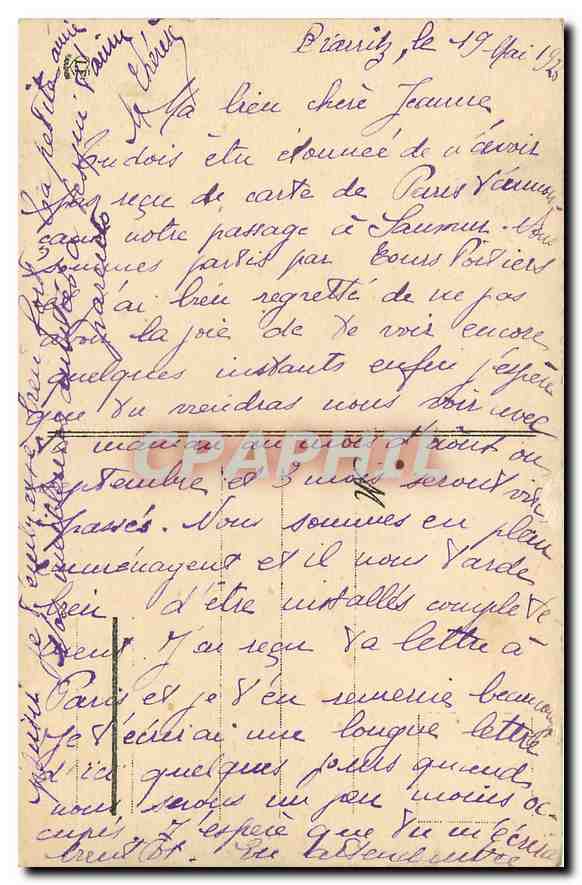 Biarritz, le 19 Mai 192
Ma bien chère Jeanne
Tu dois être étonnée de n'avoir
pas reçu de carte de Paris t'annon
çant notre passage à Saumur. Nous
sommes partis par Tours Poitiers
et j'ai bien regretté de ne pas
avoir la joie de te voir encore
quelques instants enfin j'espère
que tu viendras nous voir avec
ta maman au mois d'août ou
septembre et 3 mois seront vite
passés. Nous sommes en plein
emménagent et il nous tarde
bien d'être installés complète
ment. J'ai reçu ta lettre à
Paris et je t'en remercie beaucoup
Je t'écrirai une longue lettre
d'ici quelques jours quand
nous serons un peu moins oc
cupés. J'espère que tu m'écriras
bientôt. En attendant
je t'embrasse bien fort
Ta petite amie
qui t'aime
meilleures amitiés à
parents
CPAPHIL